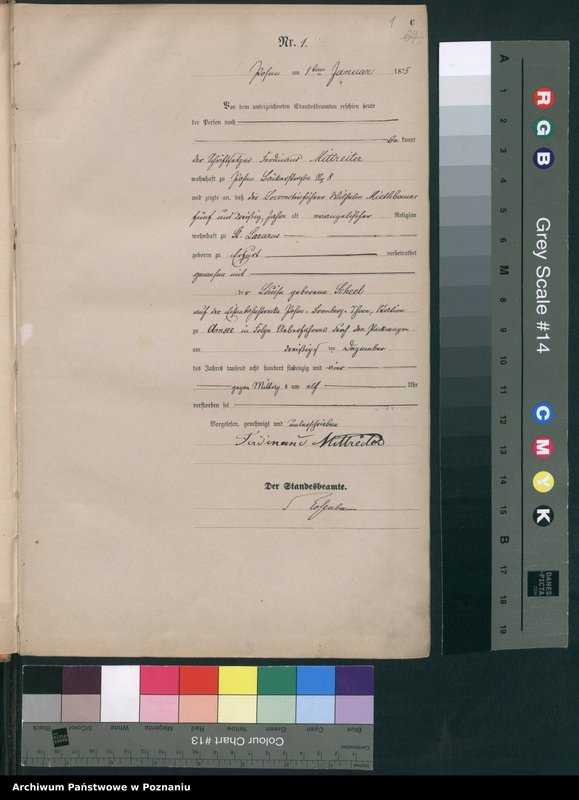 1 C
69.
Nr. 1.
Posen am 1ten Januar 1875
Vor dem unterzeichneten Standesbeamten erschien heute
der Person nach
bekannt
der Schriftsetzer Ferdinand Mittreiter
wohnhaft zu Posen Bäckerstraße No 8
und zeigte an, daß der Locomotivführer Wilhelm
fünf und dreißig Jahre alt evangelischer Religion
wohnhaft zu St. Lazarus
geboren zu Erfurt verheirathet
gewesen mit
der Louise geborene Scheel
auf der Eisenbahnstrecke Posen-Bromberg-Thorn, Station
zu Amsee in Folge Ueberfahrens durch den Packwagen
am dreißigsten Dezember
des Jahres tausend acht hundert siebenzig und vier
gegen Mittag um elf Uhr
verstorben sei
Vorgelesen, genehmigt und unterschrieben
Ferdinand Mittreiter
Der Standesbeamte.
A 1 2 3 4 5 M 8 9 10 11 12 13 14 15 B 17 18 19
R G B
Grey Scale #14
C M Y K
DANES
-PICTA
.COM
Black 3/Color White Magenta Red Yellow Green Cyan Blue
Colour Chart #13
Centimetres
Archiwum Państwowe w Poznaniu